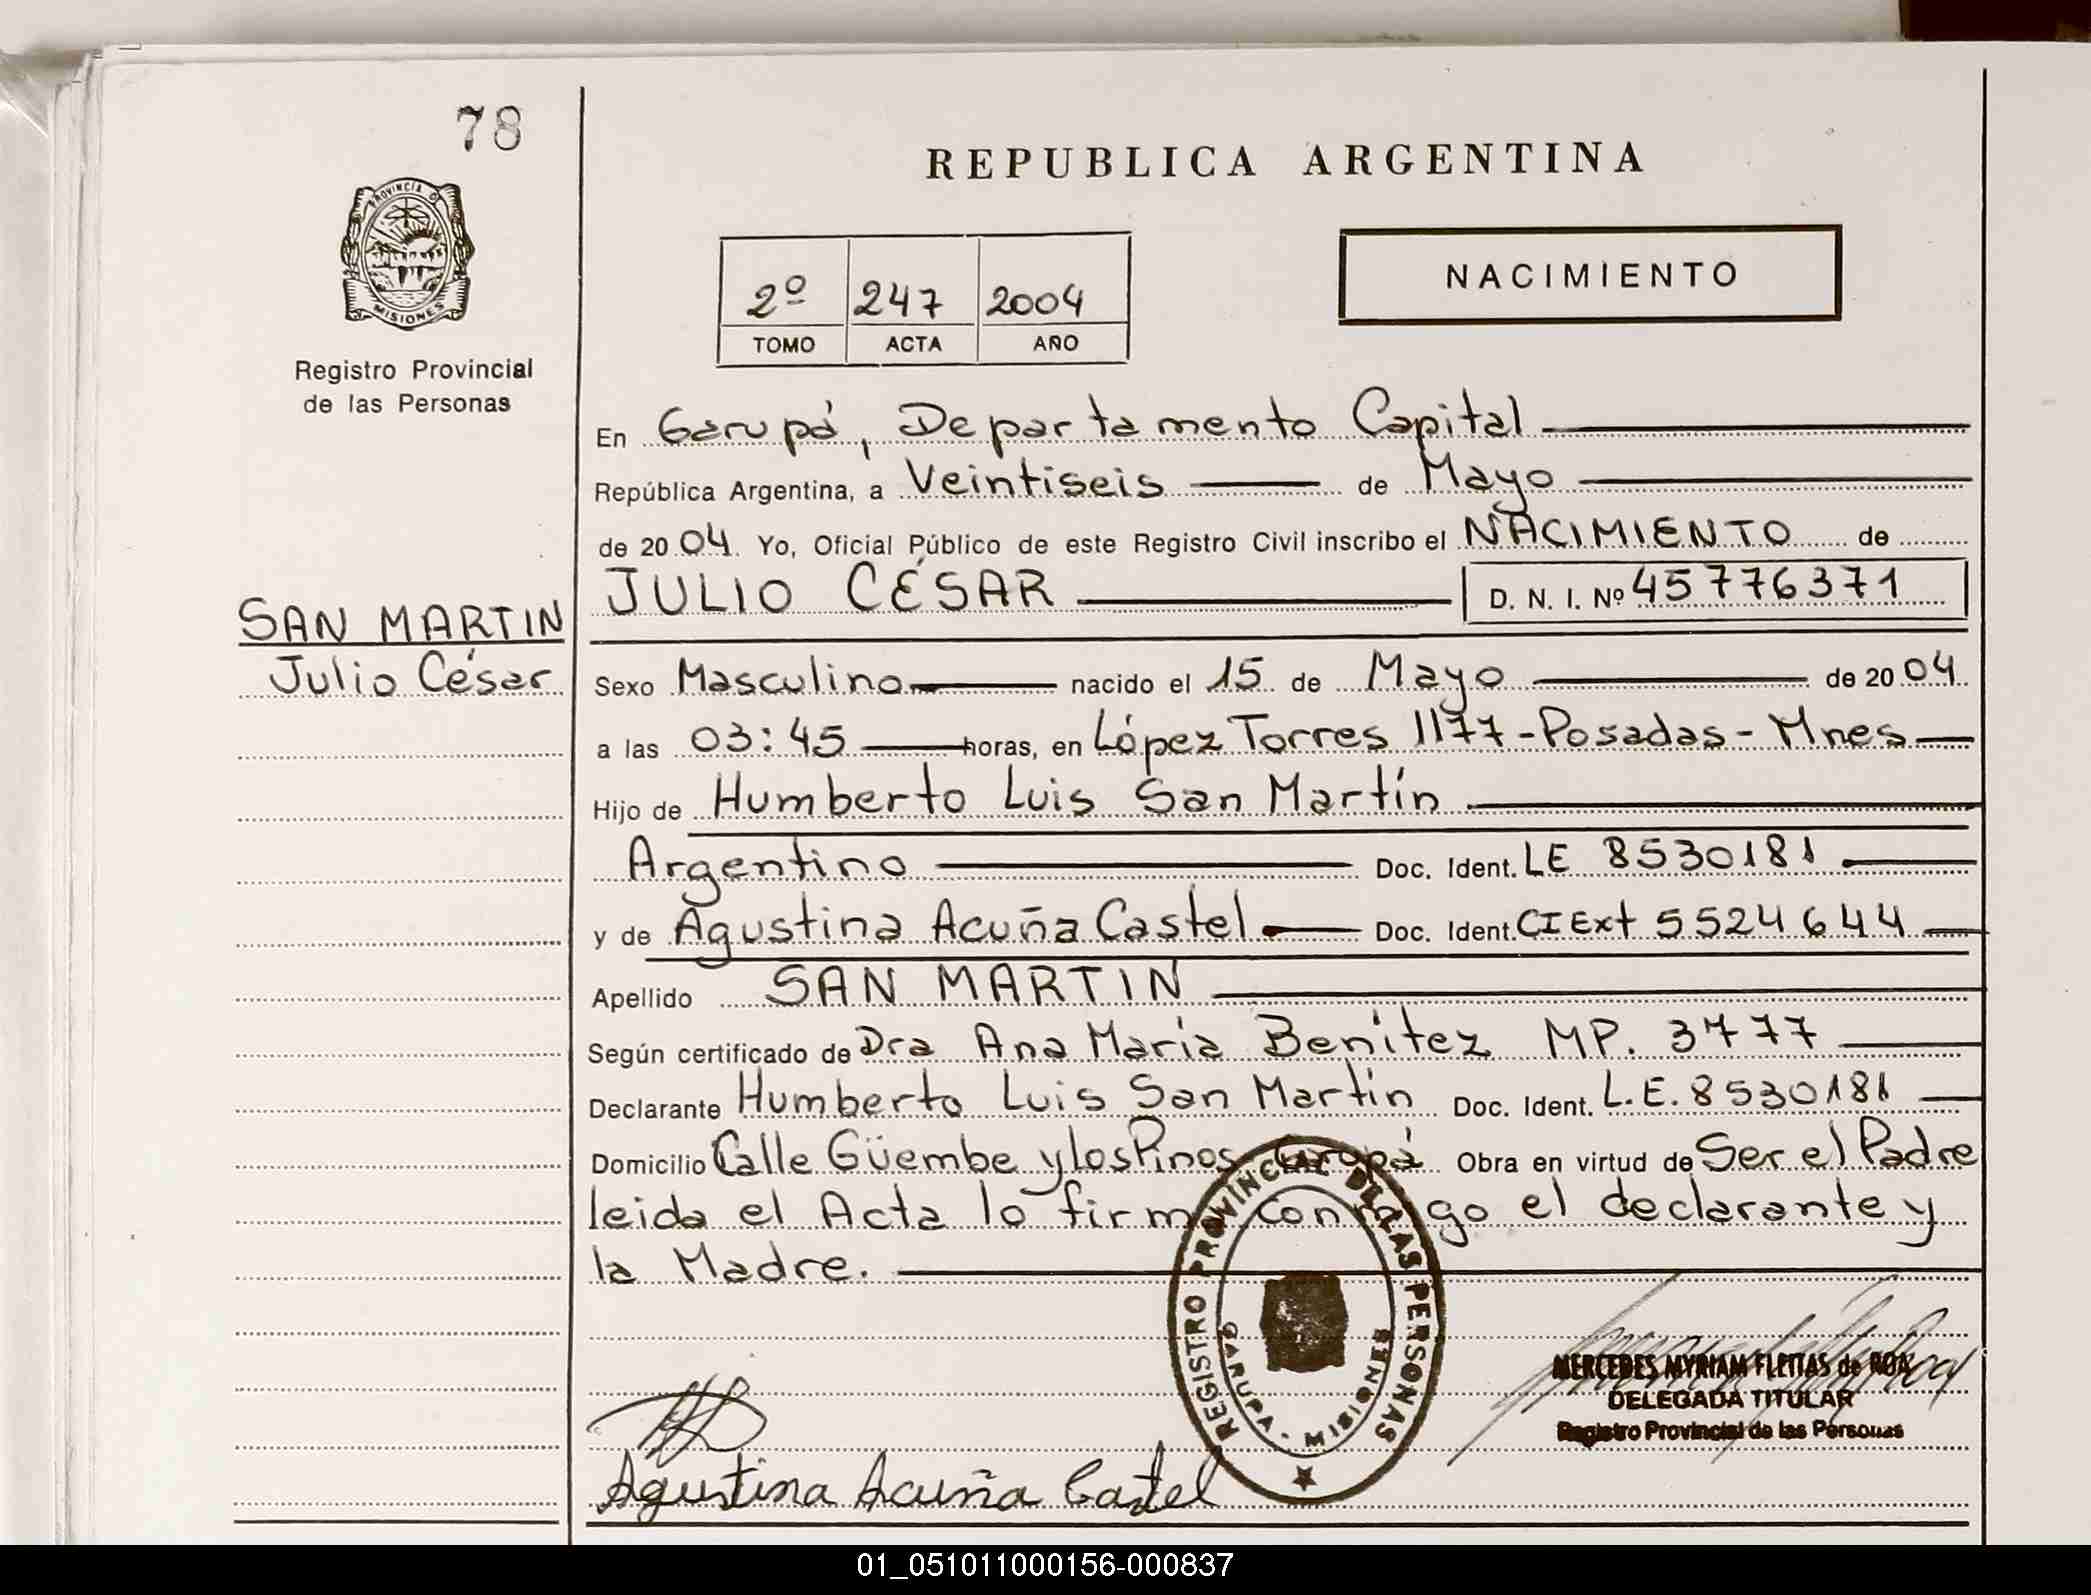 78
PROVINCIA D
MISIONES
Registro Provincial
de las Personas
SAN MARTIN
Julio César
REPUBLICA ARGENTINA
NACIMIENTO
2º 247 2004
TOMO ACTA AÑO
En Garupá, Departamento Capital
República Argentina, a Veintiseis de Mayo
de 2004. Yo, Oficial Público de este Registro Civil inscribo el NACIMIENTO de
JULIO CÉSAR D. N. I. Nº 45776371
Sexo Masculino nacido el 15 de Mayo de 2004
a las 03:45 horas, en López Torres 1177-Posadas-Mnes
Hijo de Humberto Luis San Martín
Argentino Doc. Ident. LE 8530181
y de Agustina Acuña Castel Doc. Ident. CI Ext 5524644
Apellido SAN MARTIN
Según certificado de Dra Ana María Benítez MP. 3777
Declarante Humberto Luis San Martín Doc. Ident. L.E. 8530181
Domicilio Calle Güembe y los Pinos Garupá Obra en virtud de Ser el Padre
leida el Acta lo firma conmigo el declarante y
la Madre.
REGISTRO PROVINCIAL DE LAS PERSONAS
GARUPA - MISIONES
MERCEDES MYRIAM FLEITAS de ROA
DELEGADA TITULAR
Registro Provincial de las Personas
Agustina Acuña Castel
01_051011000156-000837